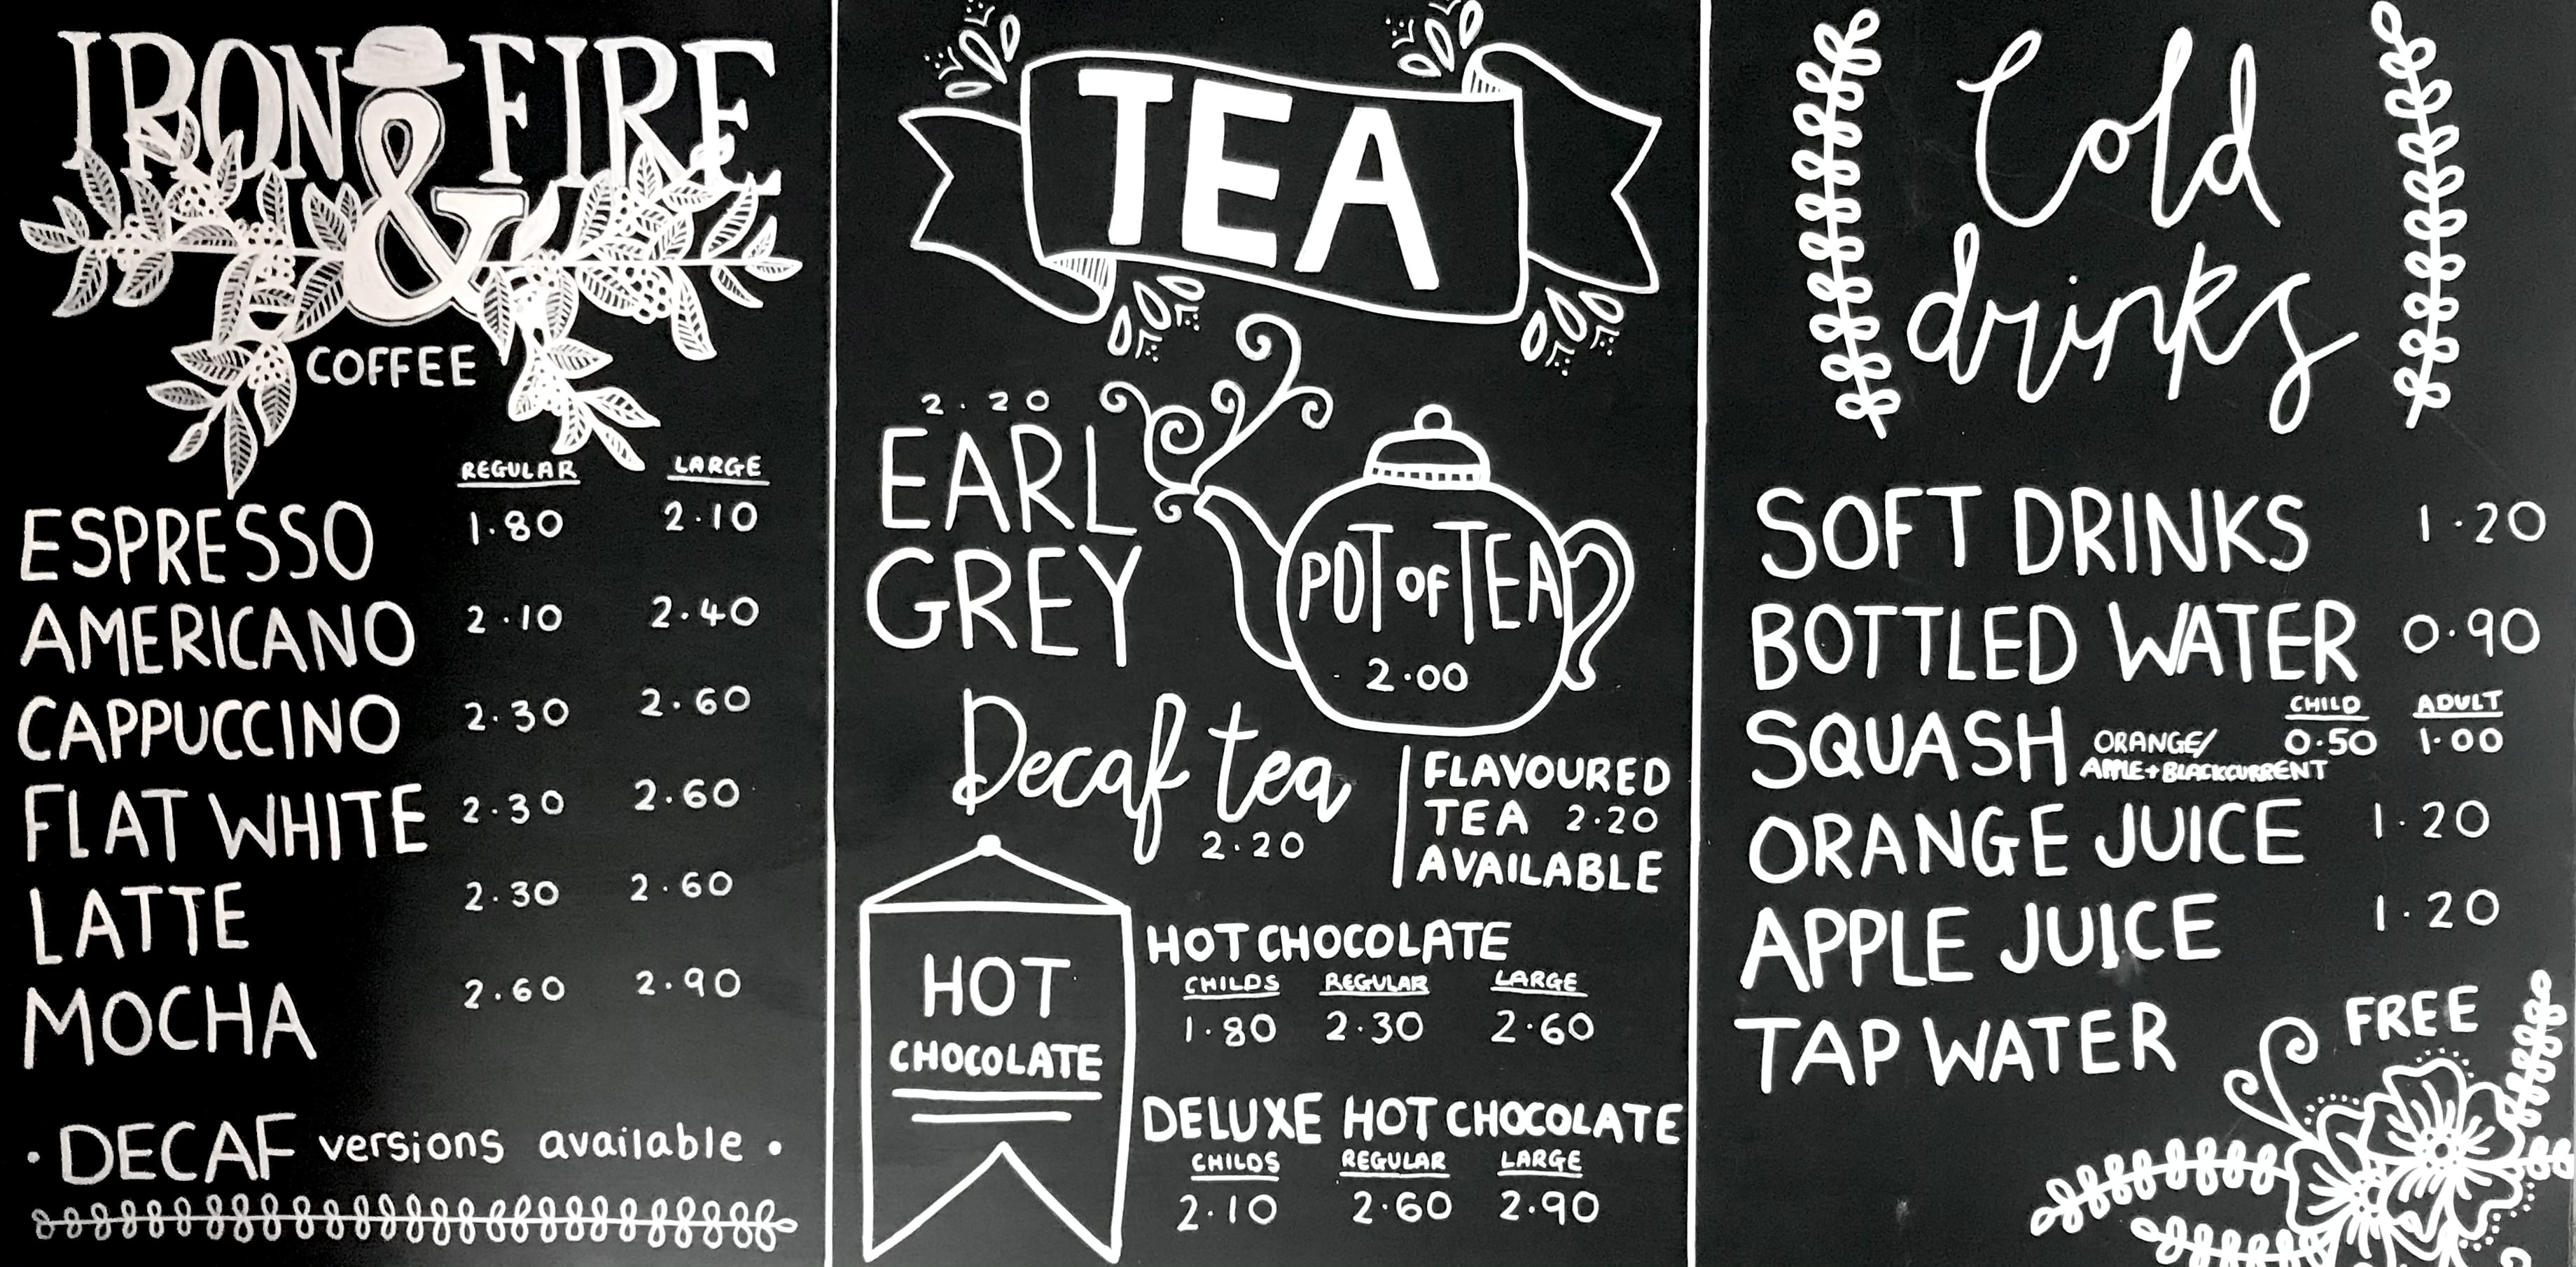 IRON & FIRE
COFFEE
REGULAR LARGE
ESPRESSO 1.80 2.10
AMERICANO 2.10 2.40
CAPPUCCINO 2.30 2.60
FLAT WHITE 2.30 2.60
LATTE 2.30 2.60
MOCHA 2.60 2.90
· DECAF versions available ·
TEA
2.20
EARL
GREY
POT OF TEA
2.00
Decaf tea
2.20
FLAVOURED
TEA 2.20
AVAILABLE
HOT
CHOCOLATE
HOT CHOCOLATE
CHILDS REGULAR LARGE
1.80 2.30 2.60
DELUXE HOT CHOCOLATE
CHILDS REGULAR LARGE
2.10 2.60 2.90
Cold
drinks
SOFT DRINKS 1.20
BOTTLED WATER 0.90
CHILD ADULT
SQUASH ORANGE/ 0.50 1.00
APPLE+BLACKCURRENT
ORANGE JUICE 1.20
APPLE JUICE 1.20
TAP WATER FREE